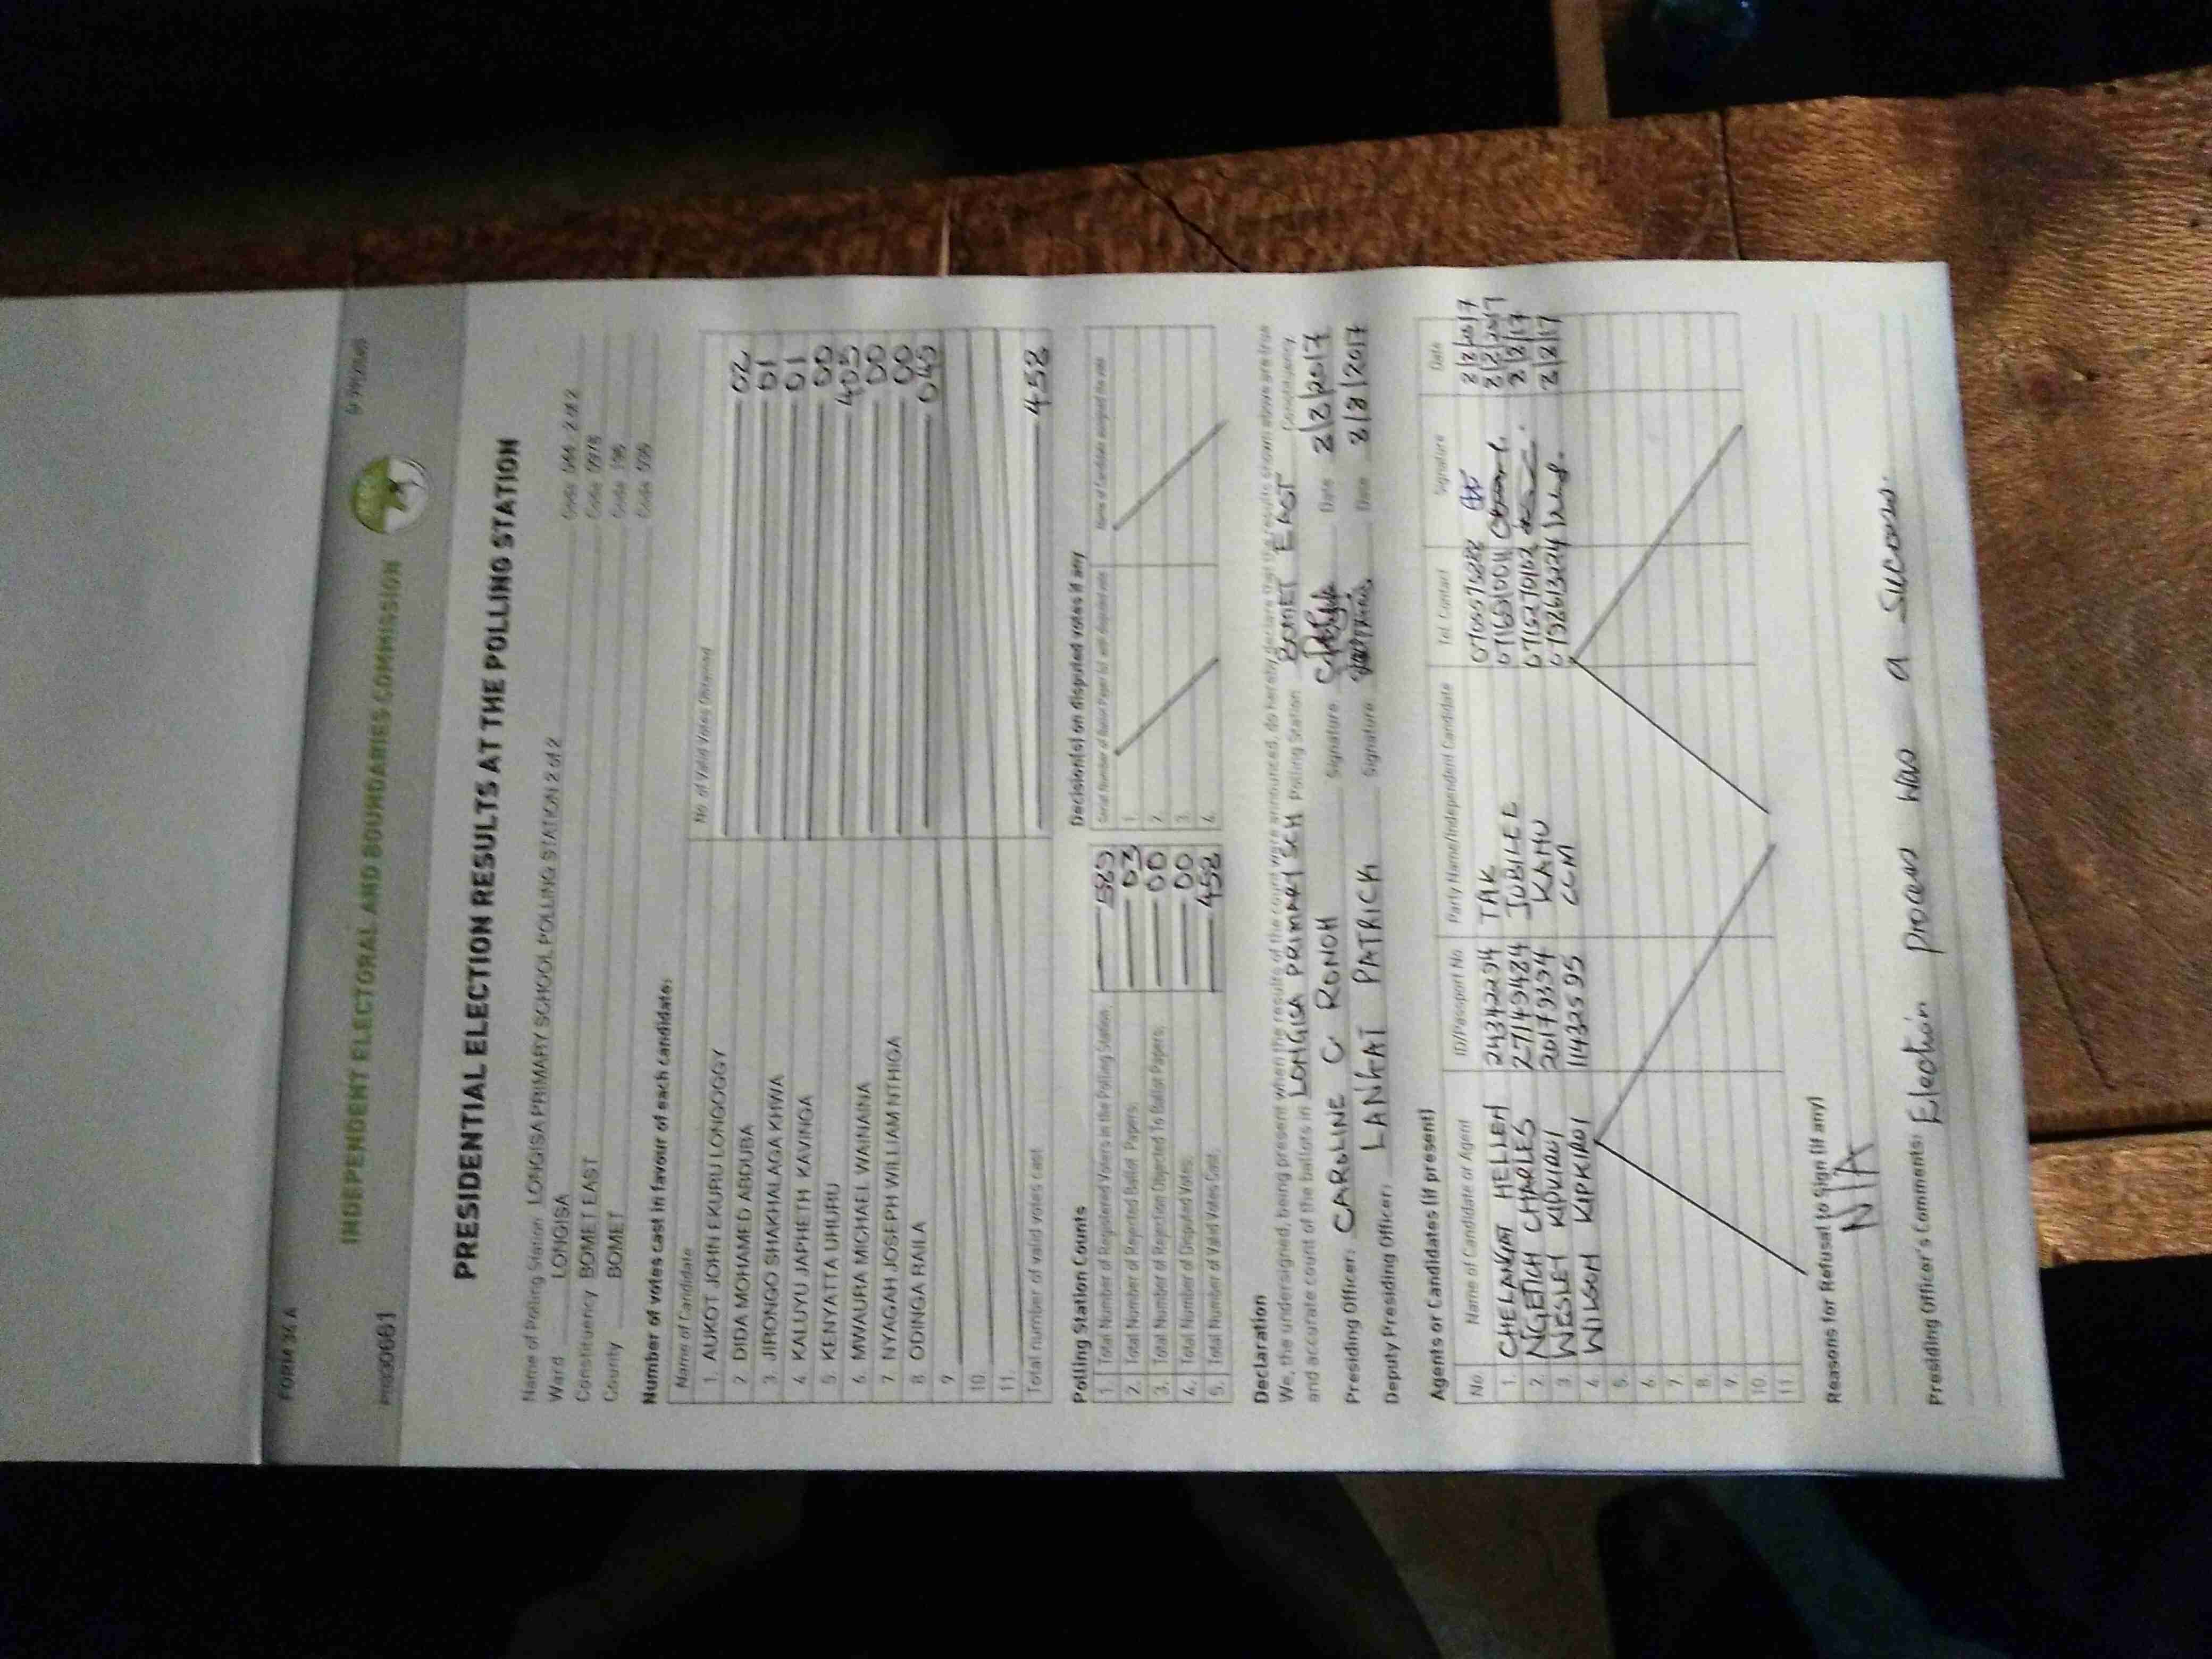 FORM 34 A
INDEPENDENT ELECTORAL AND BOUNDARIES COMMISSION
PRESIDENTIAL ELECTION RESULTS AT THE POLLING STATION
Name of Polling Station LONGISA PRIMARY SCHOOL POLLING STATION 2 of 2 Code 044 2 of 2
Ward LONGISA Code 0978
Constituency BOMET EAST Code 196
County BOMET Code
Number of votes cast in favour of each candidate:
Name of Candidate No. of Valid Votes Obtained
1. AUKOT JOHN EKURU LONGOGGY 02
2. DIDA MOHAMED ABDUBA 01
3. JIRONGO SHAKHALAGA KHWA 01
4. KALUYU JAPHETH KAVINGA 00
5. KENYATTA UHURU 405
6. MWAURA MICHAEL WAINAINA 00
7. NYAGAH JOSEPH WILLIAM NTHIGA 00
8. ODINGA RAILA 049
9.
10.
11.
Total number of valid votes cast 458
Polling Station Counts
1. Total Number of Registered Voters in the Polling Station:
2. Total Number of Rejected Ballot Papers: 03
3. Total Number of Rejection Objected To Ballot Papers: 00
4. Total Number of Disputed Votes: 00
5. Total Number of Valid Votes Cast: 458
Decision(s) on disputed votes if any
Serial Number of Ballot Paper (s) with disputed vote Name of Candidate assigned the vote
1.
2.
3.
4.
Declaration
We, the undersigned, being present when the results of the count were announced, do hereby declare that the results shown above are true
and accurate count of the ballots in LONGISA PRIMARY SCH Polling Station BOMET EAST Constituency.
Presiding Officer: CAROLINE C RONOH Signature Date 8/8/2017
Deputy Presiding Officer: LANGAT PATRICK Signature Date 8/8/2017
Agents or Candidates (if present)
No Name of Candidate or Agent ID/Passport No Party Name/Independent Candidate Tel. Contact Signature Date
1. CHELANGAT HELLEN 24342294 TAK 8/8/2017
2. NGETICH CHARLES 27149484 JUBILEE 8/8/2017
3. WESLEY KIPKIRUI 20179394 KANU 8/8/17
4. WILSON KIPKIRUI 11432595 CCM 8/8/17
5.
6.
7.
8.
9.
10.
11.
Reasons for Refusal to Sign (if any)
N/A
Presiding Officer's Comments: Election process was a success.